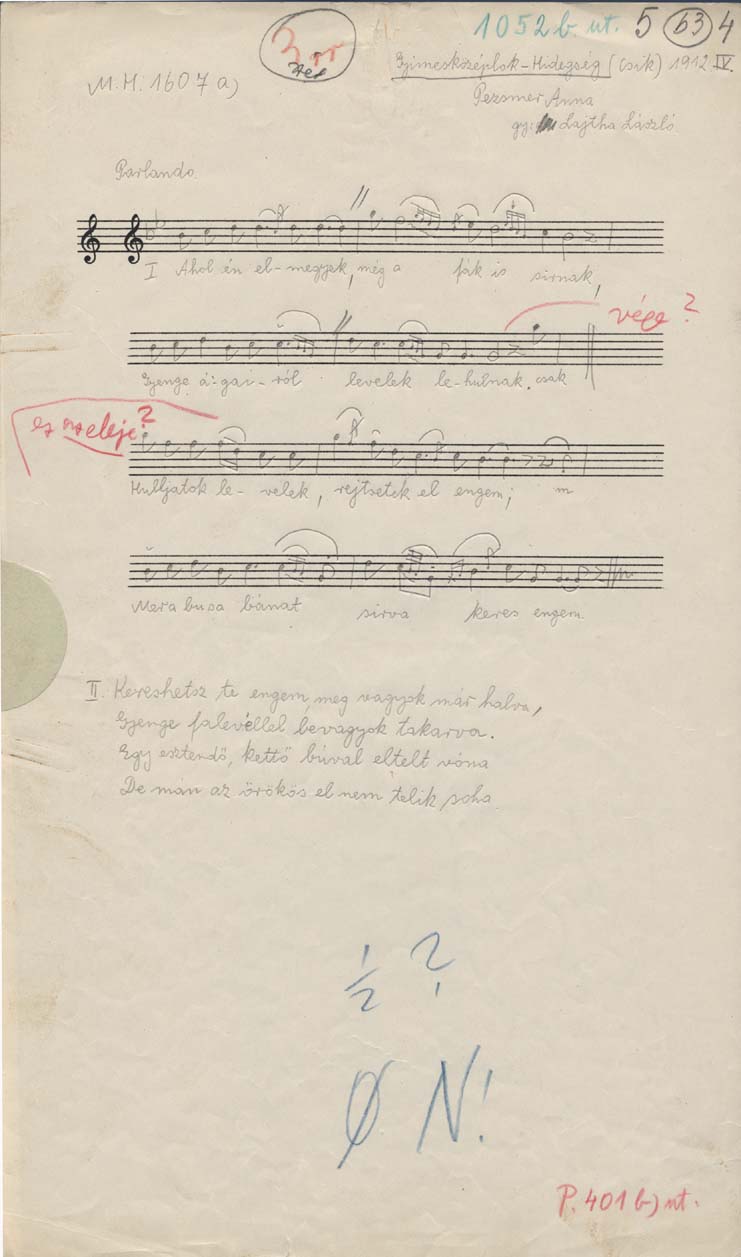 1052 b. ut. 5 (63) 4
3 rr
M.H. 1607 a)
Gyimesközéplok-Hidegség (Csik) 1912. IV.
Pezsmer Anna
gy: Lajtha László
Parlando.
I Ahol én el-megyek, még a fák is sirnak,
vége?
Gyenge á-gai-ról levelek le-hulnak. csak
ez az eleje?
Hulljatok le-velek, rejtsetek el engem; m
Mer a busa bánat sirva keres engem.
II. Kereshetsz te engem, meg vagyok már halva,
Gyenge falevéllel bevagyok takarva.
Egy esztendő, kettő búval eltelt vóna
De mán az örökös el nem telik soha
1/2 ?
Ø N!
P. 401 b) ut.